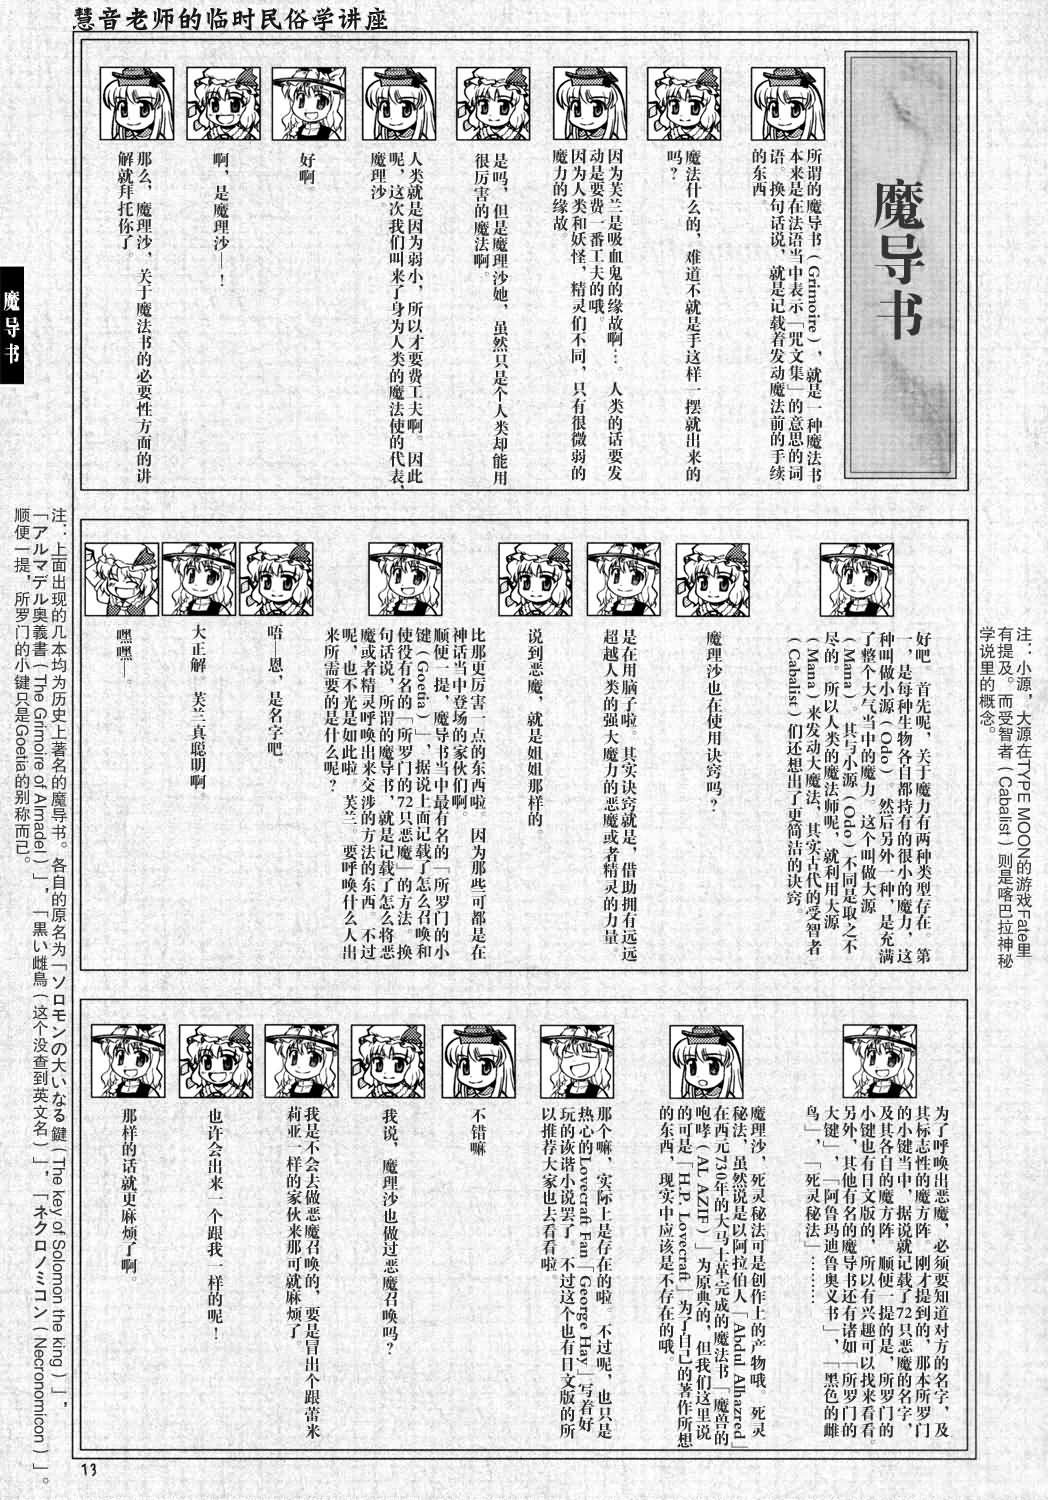 慧音老师的临时民俗学讲座
魔导书
所谓的魔导书(Grimoire),就是一种魔法书。
本来是在法语当中表示「咒文集」的意思的词
语。换句话说,就是记载着发动魔法前的手续
的东西。
魔法什么的,难道不就是手这样一摆就出来的
吗?
因为芙兰是吸血鬼的缘故啊…。人类的话要发
动是要费一番工夫的哦。
因为人类和妖怪,精灵们不同,只有很微弱的
魔力的缘故
是吗,但是魔理沙她,虽然只是个人类却能用
很厉害的魔法啊。
人类就是因为弱小,所以才要费工夫啊。因此
呢,这次我们叫来了身为人类的魔法使的代表,
魔理沙
好啊。
啊,是魔理沙—!
那么,魔理沙,关于魔法书的必要性方面的讲
解就拜托你了。
魔导书
注:小源,大源在TYPE MOON的游戏Fate里
有提及。而受智者(Cabalist)则是喀巴拉神秘
学说里的概念。
好吧。首先呢,关于魔力有两种类型存在。第
一,是每种生物各自都持有的很小的魔力,这
种叫做小源(Odo)。然后另外一种,是充满
了整个大气当中的魔力。这个叫做大源
(Mana)。其与小源(Odo)不同是取之不
尽的。所以人类的魔法师呢,就利用大源
(Mana)来发动大魔法,其实古代的受智者
(Cabalist)们还想出了更简洁的诀窍。
魔理沙也在使用诀窍吗?
是在用脑子啦。其实诀窍就是,借助拥有远远
超越人类的强大魔力的恶魔或者精灵的力量。
说到恶魔,就是姐姐那样的。
比那更厉害一点的东西啦。因为那些可都是在
神话当中登场的家伙们啊。
顺便一提,魔导书当中最有名的「所罗门的小
键(Goetia)」,据说上面记载了怎么召唤和
使役有名的「所罗门的72只恶魔」的方法。换
句话说,所谓的魔导书,就是记载了怎么将恶
魔或者精灵呼唤出来交涉的方法的东西。不过
呢,也不光是如此啦。芙兰。要呼唤什么人出
来所需要的是什么呢?
唔—恩,是名字吧。
大正解。芙兰真聪明啊。
嘿嘿—。
为了呼唤出恶魔,必须要知道对方的名字,及
其标志性的魔方阵。刚才提到的,那本所罗门
的小键当中,据说就记载了72只恶魔的名字,
及其各自的魔方阵。顺便一提的是,所罗门的
小键也有日文版的,所以有兴趣可以找来看看。
另外,其他有名的魔导书还有诸如「所罗门的
大键」,「阿鲁玛迪鲁奥义书」,「黑色的雌
鸟」,「死灵秘法」………
魔理沙,死灵秘法可是创作上的产物哦。死灵
秘法,虽然说是以阿拉伯人「Abdul Alhazred」
在西元730年的大马士革完成的魔法书「魔兽的
咆哮(AL AZIF)」为原典的,但我们这里说
的可是「H.P. Lovecraft」为了自己的著作所想
的东西,现实中应该是不存在的哦。
那个嘛,实际上是存在的啦。不过呢,也只是
热心的Lovecraft Fan「George Hay」写着好
玩的诙谐小说罢了。不过这个也有日文版的所
以推荐大家也去看看啦。
不错嘛
我说,魔理沙也做过恶魔召唤吗?
我是不会去做恶魔召唤的,要是冒出个跟蕾米
莉亚一样的家伙来那可就麻烦了
也许会出来一个跟我一样的呢!
那样的话就更麻烦了啊。
注:上面出现的几本均为历史上著名的魔导书。各自的原名为「ソロモンの大いなる鍵(The key of Solomon the king)」,
「アルマデル奥義書(The Grimoire of Almadel)」,「黒い雌鳥(这个没查到英文名)」,「ネクロノミコン(Necronomicon)」。
顺便一提,所罗门的小键只是Goetia的别称而已。
13